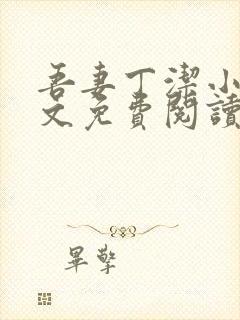 吾妻丁潔小
文免費閱讀
畢擎